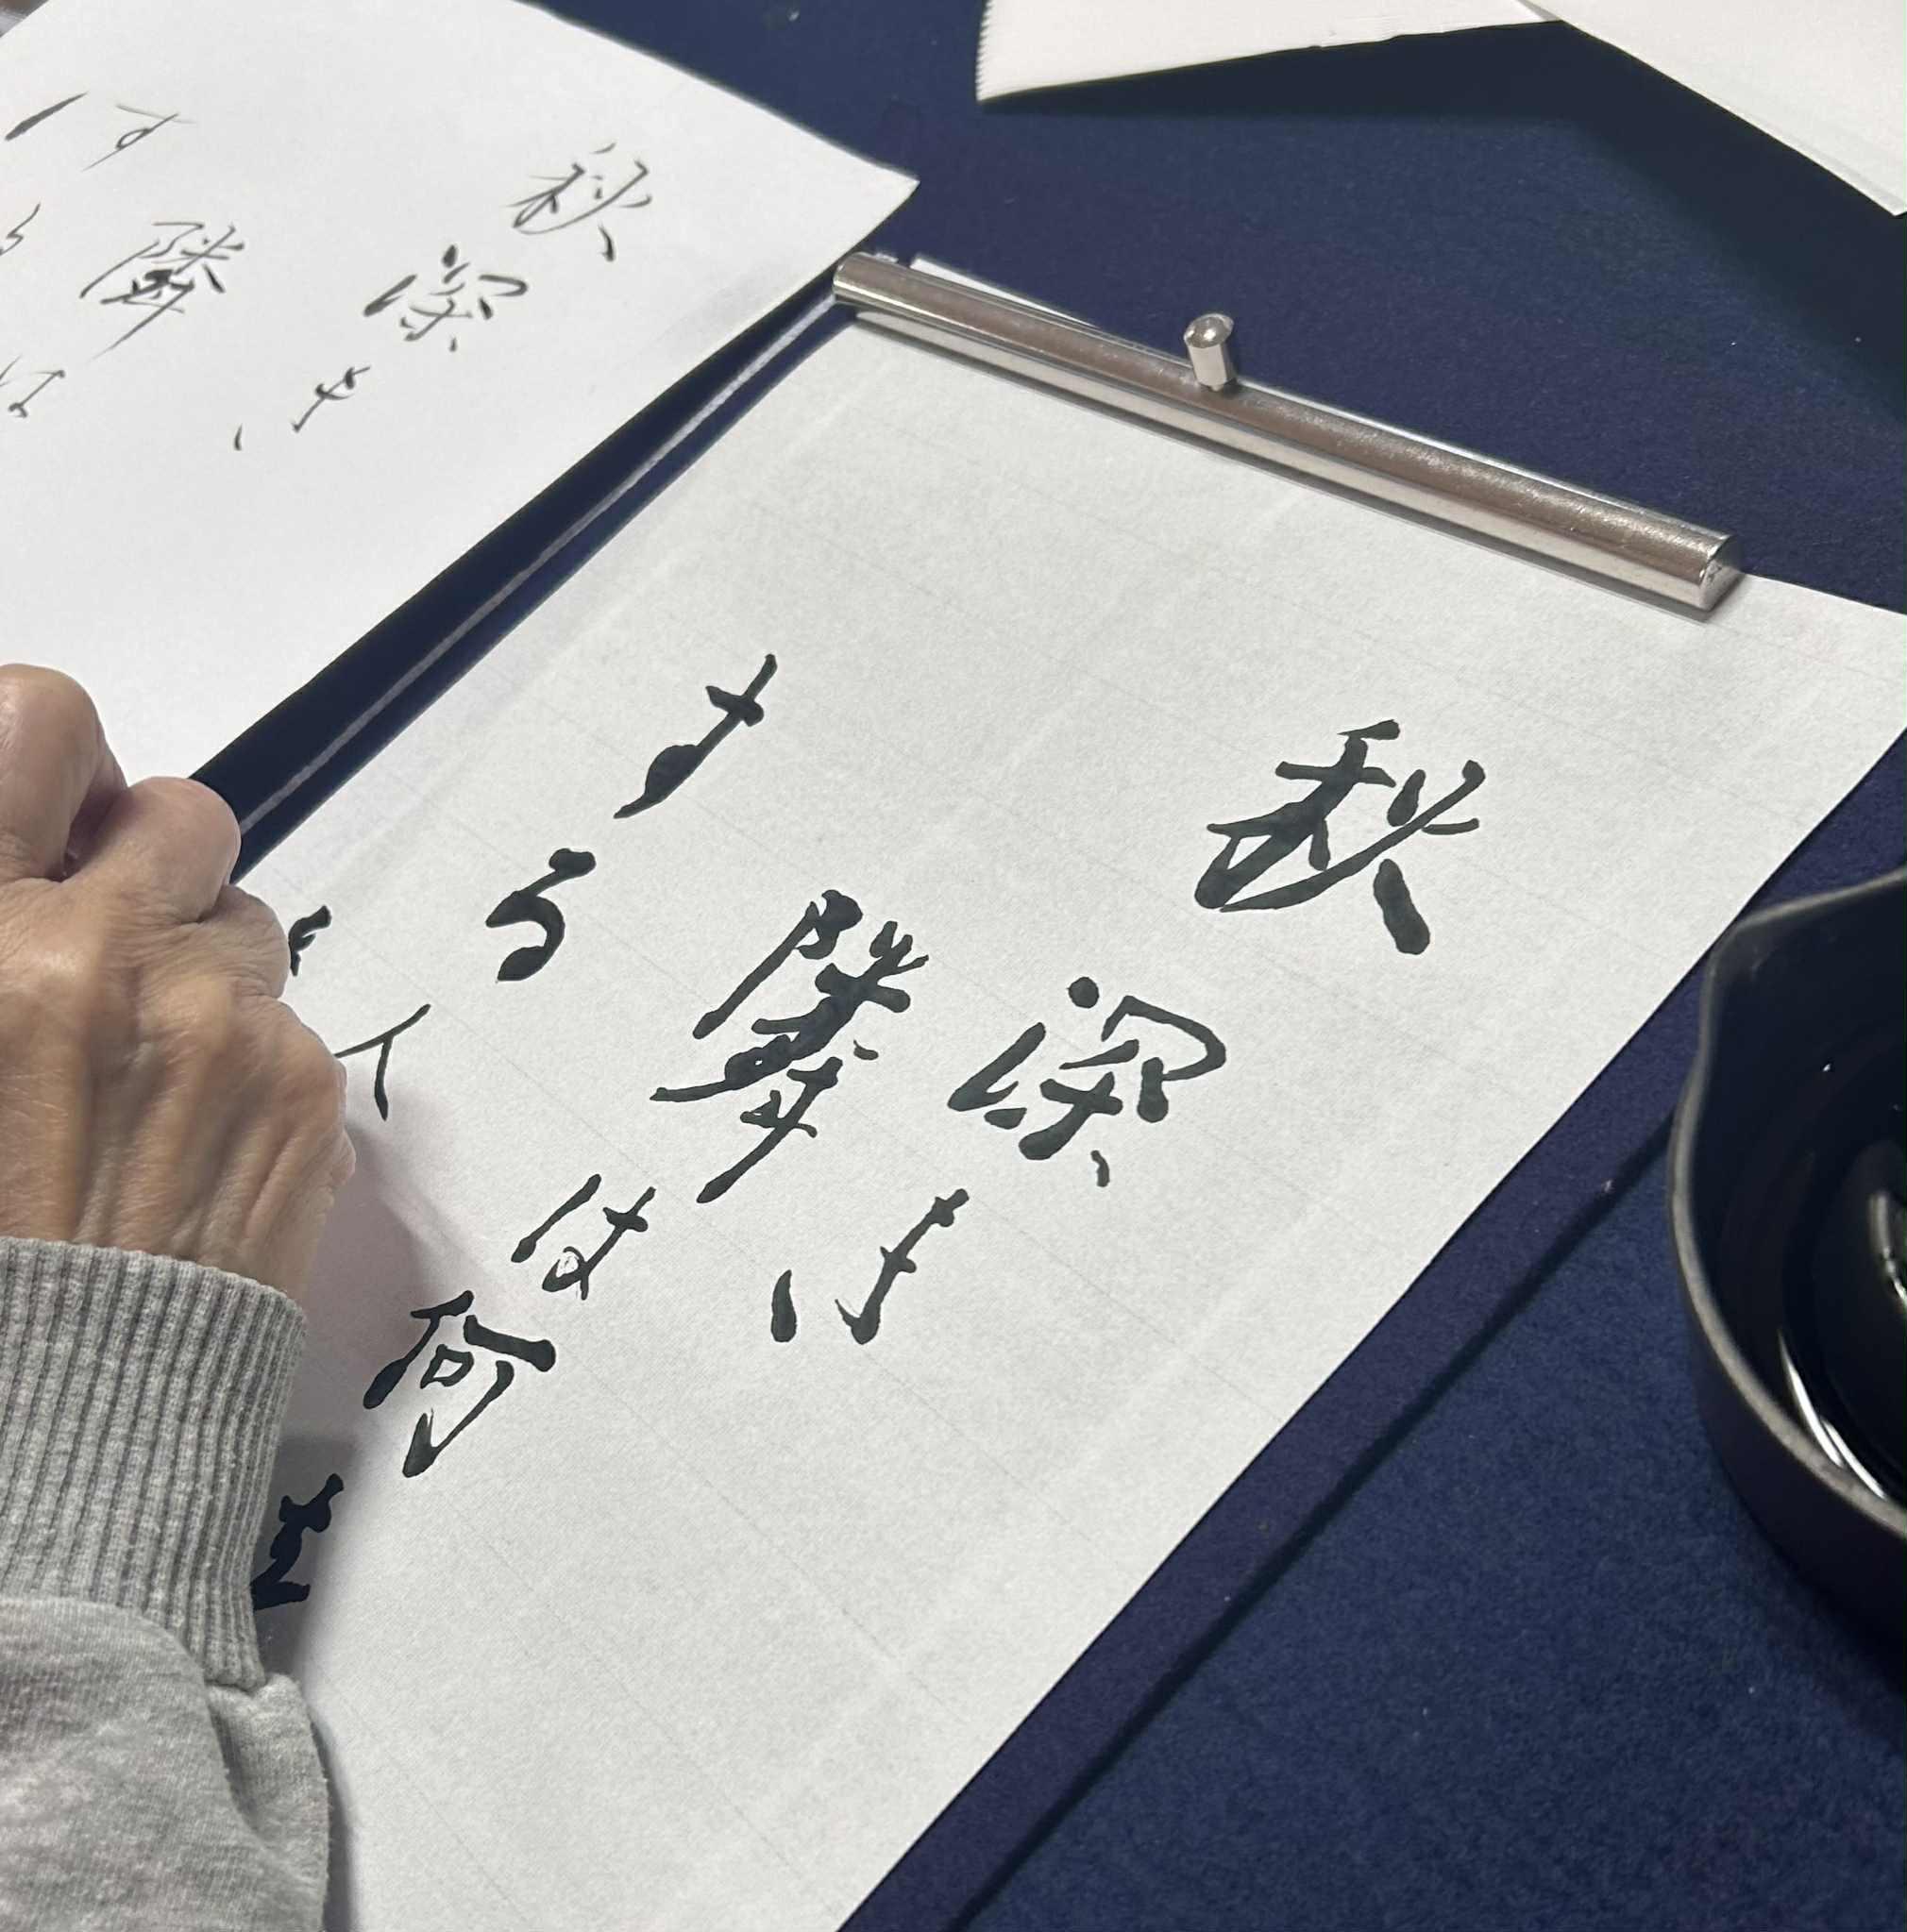 秋深き
隣は何を
する人
秋深き
隣は
する